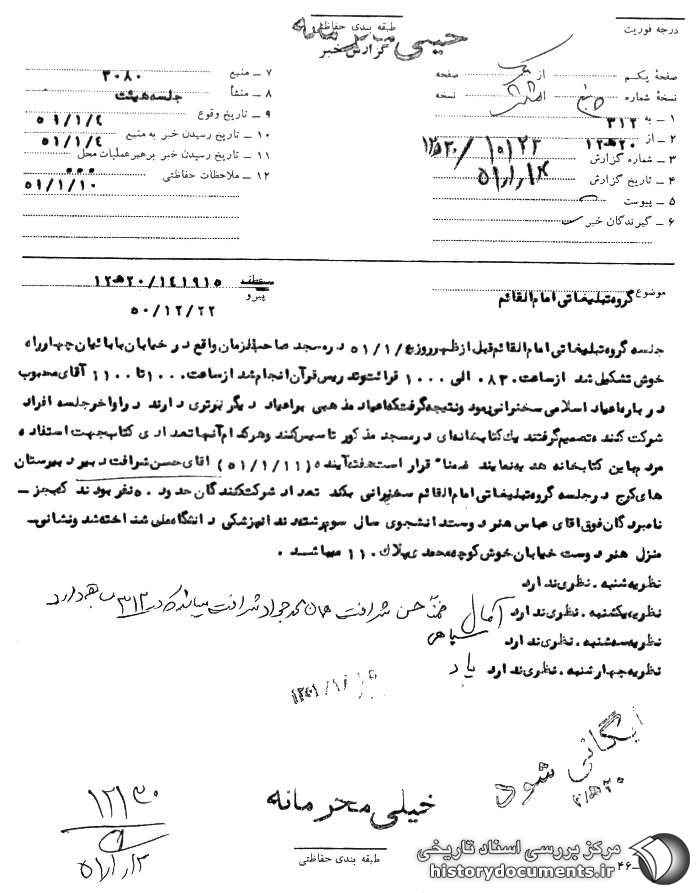 درجه فوریت
طبقه بندی حفاظتی
خیلی محرمانه
گزارش خبر
صفحهٔ یکم از یک صفحه
نسخهٔ شماره نسخه
۱ – به ۳۱۲
۲ – از ۲۰ﻫ۱۲
۳ – شماره گزارش ۱۰۱۲۲/
۴ – تاریخ گزارش
۵ – پیوست
۶ – گیرندگان خبر
۷ – منبع ۳۰۸۰
۸ – منشأ جلسه هیئت
۹ – تاریخ وقوع ۵۱/۱/٤
۱۰ – تاریخ رسیدن خبر به منبع ۵۱/۱/٤
۱۱ – تاریخ رسیدن خبر برهبر عملیات محل
۱۲ – ملاحظات حفاظتی ۵۱/۱/۱۰
موضوع گروه تبلیغاتی امام القائم
عطف ۱۲ﻫ۲۰/۱٤۱۹۱۵
پیرو
۵۰/۱۲/۲۲
جلسه گروه تبلیغاتی امام القائم قبل از ظهر روز ٤/۱/۵۱ در مسجد صاحب الزمان واقع در خیابان بابائیان چهارراه
خوش تشکیل شد از ساعت ۰۸۳۰ الی ۱۰۰۰ قرائت و تدریس قرآن انجام شد از ساعت ۱۰۰۰ تا ۱۱۰۰ آقای محبوب
درباره اعیاد اسلامی سخنرانی نمود و نتیجه گرفت که اعیاد مذهبی بر اعیاد دیگر برتری دارند در اواخر جلسه افراد
شرکت کننده تصمیم گرفتند یک کتابخانه‌ای در مسجد مذکور تاسیس کنند و هر کدام آنها تعدادی کتاب جهت استفاده
مردم باین کتابخانه هدیه نمایند ضمنا" قرار است هفته آینده (۵۱/۱/۱۱) آقای حسن شرافت دبیر دبیرستان
های کرج در جلسه گروه تبلیغاتی امام القائم سخنرانی بکند تعداد شرکت کنندگان حدود ۵۰ نفر بودند که بجز –
نامبردگان فوق آقای عباس هنر دوست دانشجوی سال سوم رشته دندانپزشکی دانشگاه ملی شناخته شد و نشانی –
منزل هنر دوست خیابان خوش کوچه محمدی پلاک ۱۱۰ میباشد .
نظریه شنبه . نظری ندارد
نظریه یکشنبه . نظری ندارد آمال ضمناً حسن شرافت همان محمد جواد شرافت میباشد که در ۳۱۲ سابقه دارد
نظریه سه شنبه . نظری ندارد سپاهی
نظریه چهارشنبه . نظری ندارد یاد
بایگانی شود
خیلی محرمانه
طبقه بندی حفاظتی
۴۶
مرکز بررسی اسناد تاریخی
historydocuments.ir